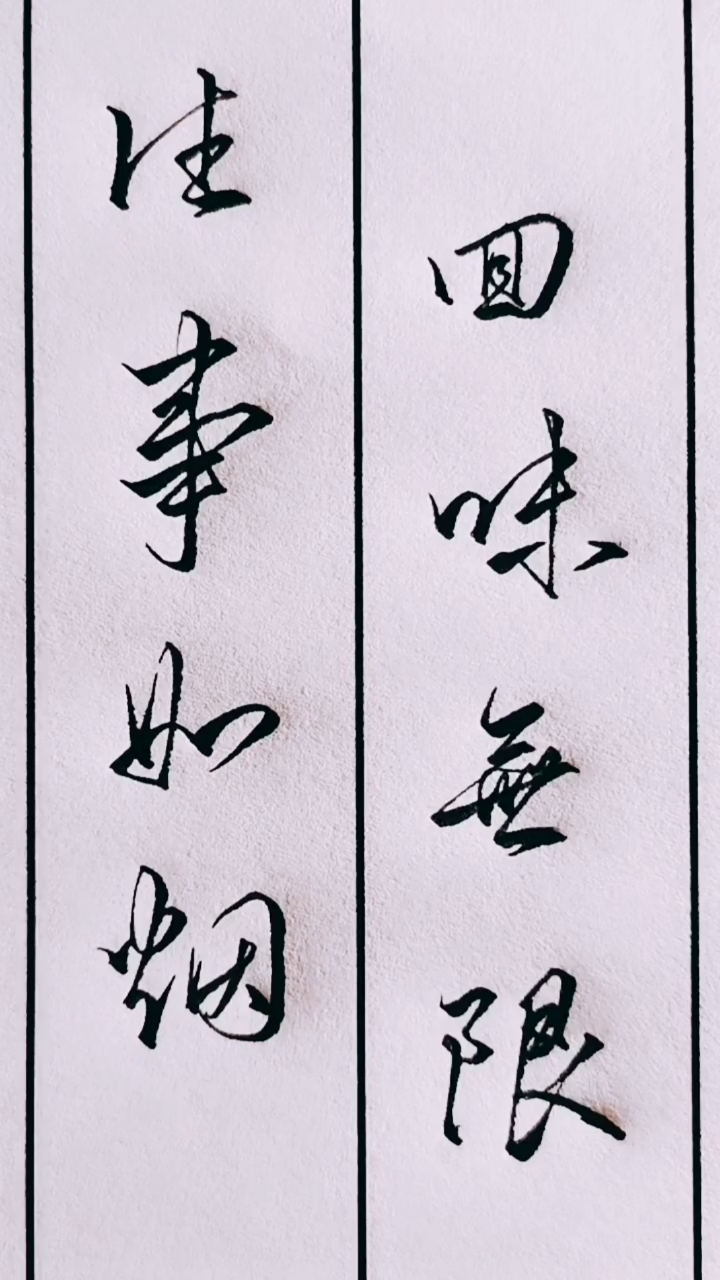 往事如烟
回味無限